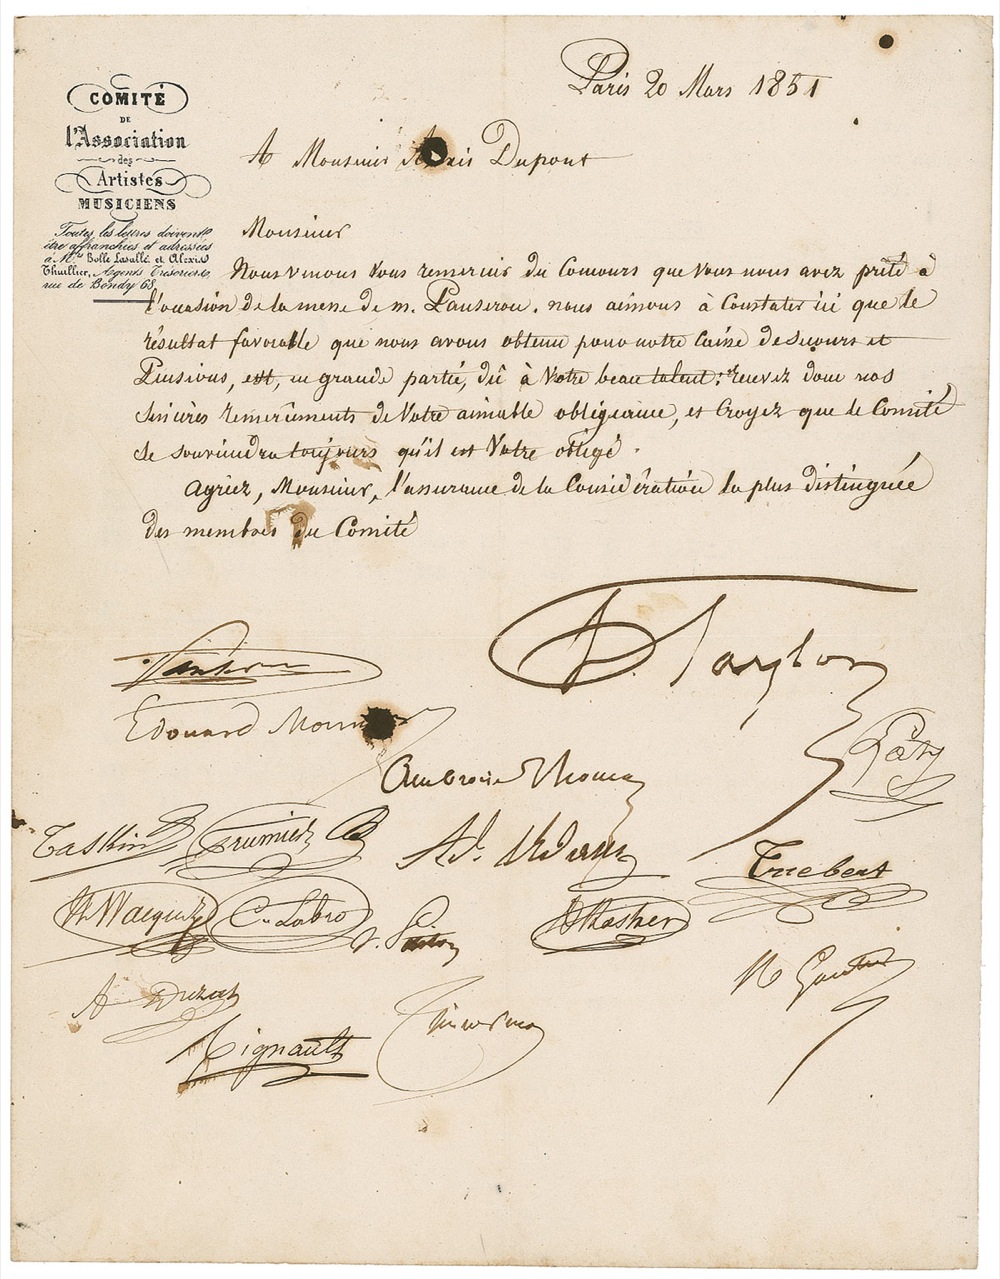 COMITÉ
DE
l'Association
des
Artistes
MUSICIENS
Toutes les lettres doivent
être affranchies et adressées
à M.rs Bolle Lasalle et Alexis
Thuillier, Agents Trésoriers
rue de Bondy 68
Paris 20 Mars 1851
A Monsieur Dupont
Monsieur
Nous venons vous remercier du Concours que vous nous avez prêté à
l'occasion de la messe de m. Panseron. nous aimons à Constater ici que le
résultat favorable que nous avons obtenu pour notre Caisse de secours et
Pensions, est, en grande partie, dû à votre beau talent: recevez donc nos
sincères remercîments de votre aimable obligeance, et croyez que le Comité
se souviendra toujours qu'il est votre obligé.
Agréez, Monsieur, l'assurance de la Considération la plus distinguée
des membres du Comité
Panseron
B. Taylor
Edouard
Ambroise Thomas
Taskin
Ad. Adam
Triebert
Rignault